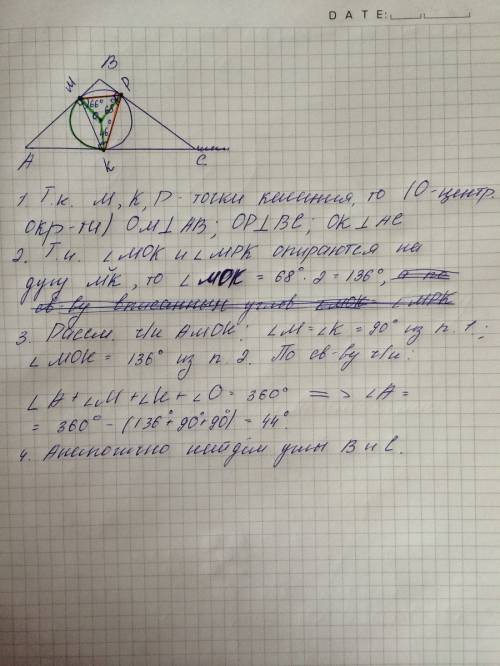 DATE:
B
M
P
66°
68°
O
46°
A
K
C
1. Т.к. M, K, P - точки касания, то (O-центр.
окр-ти) OM⊥AB; OP⊥BC; OK⊥AC
2. Т.к. ∠MOK и ∠MPK опираются на
дугу MK, то ∠MOK = 68°·2 = 136°,
св-ву вписанных углов ∠MOK = ∠MPK
3. Рассм. ч/к AMOK: ∠M=∠K = 90° из п. 1;
∠MOK = 136° из п. 2. По св-ву ч/к:
∠A+∠M+∠K+∠O = 360° => ∠A =
= 360° - (136°+90°+90°) = 44°.
4. Аналогично найдём углы B и C.